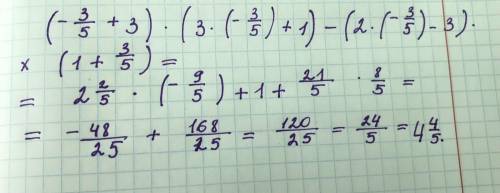 (-3/5 + 3) · (3 · (-3/5) + 1) - (2 · (-3/5) - 3) ·
x (1 + 3/5) =
= 2 2/5 · (-9/5) + 1 + 21/5 · 8/5 =
= -48/25 + 168/25 = 120/25 = 24/5 = 4 4/5.